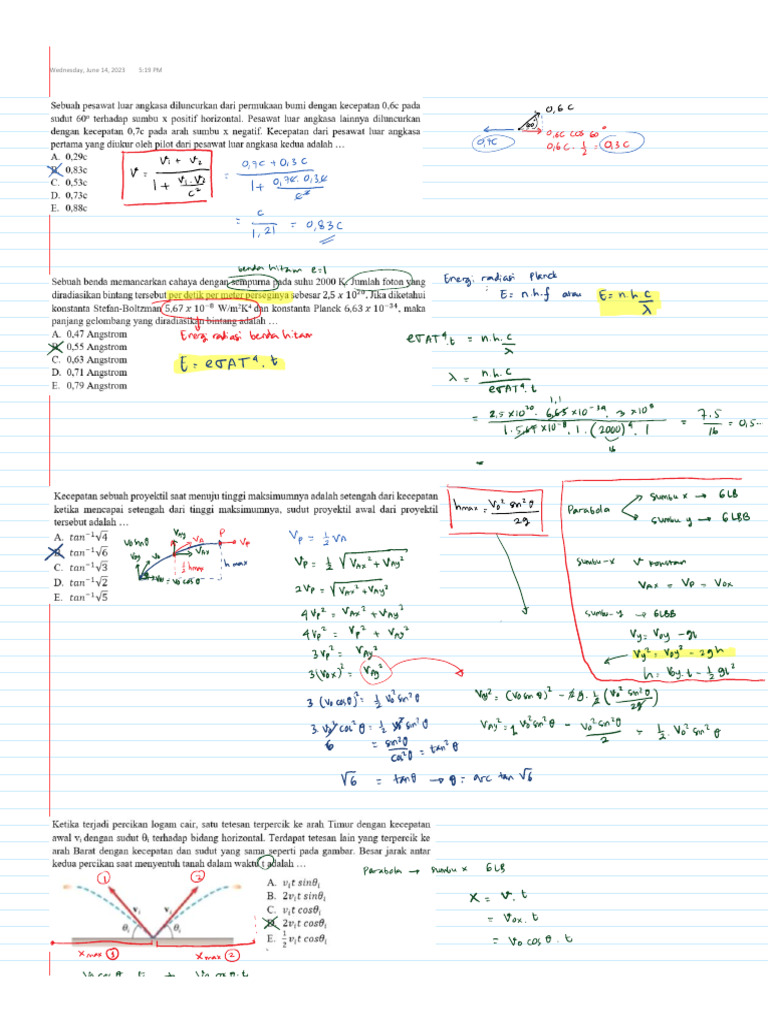 Wednesday, June 14, 2023 5:19 PM
Sebuah pesawat luar angkasa diluncurkan dari permukaan bumi dengan kecepatan 0,6c pada
sudut 60° terhadap sumbu x positif horizontal. Pesawat luar angkasa lainnya diluncurkan
dengan kecepatan 0,7c pada arah sumbu x negatif. Kecepatan dari pesawat luar angkasa
pertama yang diukur oleh pilot dari pesawat luar angkasa kedua adalah …
A. 0,29c
B. 0,83c
C. 0,53c
D. 0,73c
E. 0,88c
V = V₁ + V₂ / 1 + V₁ . V₂ / c²
= 0,7c + 0,3c / 1 + 0,7c . 0,3c / c²
= c / 1,21 = 0,83c
0,6c
60°
0,6c cos 60°
0,7c
0,6c . 1/2 = 0,3c
benda hitam e=1
Sebuah benda memancarkan cahaya dengan sempurna pada suhu 2000 K. Jumlah foton yang
diradiasikan bintang tersebut per detik per meter perseginya sebesar 2,5 x 10²⁰. Jika diketahui
konstanta Stefan-Boltzman 5,67 x 10⁻⁸ W/m²K⁴ dan konstanta Planck 6,63 x 10⁻³⁴, maka
panjang gelombang yang diradiasikan bintang adalah …
A. 0,47 Angstrom
B. 0,55 Angstrom
C. 0,63 Angstrom
D. 0,71 Angstrom
E. 0,79 Angstrom
Energi radiasi benda hitam
E = eσAT⁴ . t
Energi radiasi Planck
E = n.h.f atau E = n.h c/λ
eσAT⁴.t = n.h.c / λ
λ = n.h.c / eσAT⁴.t
= 7,5 / 16 = 0,5..
Kecepatan sebuah proyektil saat menuju tinggi maksimumnya adalah setengah dari kecepatan
ketika mencapai setengah dari tinggi maksimumnya, sudut proyektil awal dari proyektil
tersebut adalah …
A. tan⁻¹√4
B. tan⁻¹√6
C. tan⁻¹√3
D. tan⁻¹√2
E. tan⁻¹√5
V₀ sinθ
V₀ₓ = V₀ cos θ
1/2 hmax
h max
Vp = 1/2 VA
Vp = 1/2 √VAx² + VAy²
2Vp = √VAx² + VAy²
4Vp² = VAx² + VAy²
4Vp² = Vp² + VAy²
3Vp² = VAy²
3(Vox)² = VAy²
3 (Vo cosθ)² = 1/2 Vo² sin²θ
3. Vo² cos²θ = 1/2 Vo² sin²θ
6 = sin²θ / cos²θ = tan²θ
√6 = tanθ → θ = arc tan √6
hmax = Vo² sin²θ / 2g
Parabola
sumbu x → GLB
sumbu y → GLBB
sumbu-x V konstan
VAx = Vp = Vox
sumbu-y → GLBB
Vy = Voy - gt
Vy² = Voy² - 2gh
h = Voy.t - 1/2 gt²
VAy² = (Vo sin θ)² - 2g . 1/2 (Vo² sin²θ / 2g)
VAy² = 1 Vo² sin²θ - Vo² sin²θ / 2 = 1/2 . Vo² sin²θ
Ketika terjadi percikan logam cair, satu tetesan terpercik ke arah Timur dengan kecepatan
awal vᵢ dengan sudut θᵢ terhadap bidang horizontal. Terdapat tetesan lain yang terpercik ke
arah Barat dengan kecepatan dan sudut yang sama seperti pada gambar. Besar jarak antar
kedua percikan saat menyentuh tanah dalam waktu t adalah …
A. vᵢt sinθᵢ
B. 2vᵢt sinθᵢ
C. vᵢt cosθᵢ
D. 2vᵢt cosθᵢ
E. 1/2 vᵢt cosθᵢ
1 2
vᵢ vᵢ
θᵢ θᵢ
X max 1 X max 2
Parabola → sumbu x GLB
X = V . t
= Vox . t
= Vo cos θ . t